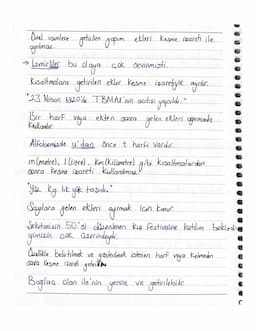 Özel isimlere getirilen yapım ekleri kesme işareti ile
ayrılmaz.
→ İzmirliler bu olaya çok sevinmişti.
Kısaltmalara getirilen ekler kesme işaretiyle ayrılır.
"23 Nisan 1920'de TBMM'nin açılışı yapıldı."
Bir harf veya ekten sonra gelen ekleri ayırmada
kullanılır.
Alfabemizde u'dan önce t harfi vardır.
m(metre), l(litre), km(kilometre) gibi kısaltmalardan
sonra kesme işareti kullanılmaz.
"Yüz kg lık yük taşıdı."
Sayılara gelen ekleri ayırmak için konur.
50'si düzenlenen kış festivaline katılım
çok üzerindeydi.
Özellikle belirtilmek ve gösterilmek istenen harf veya kelimeden
sonra kesme işareti
Bağlaç olan ile'nin yerine ve getirilebilir.